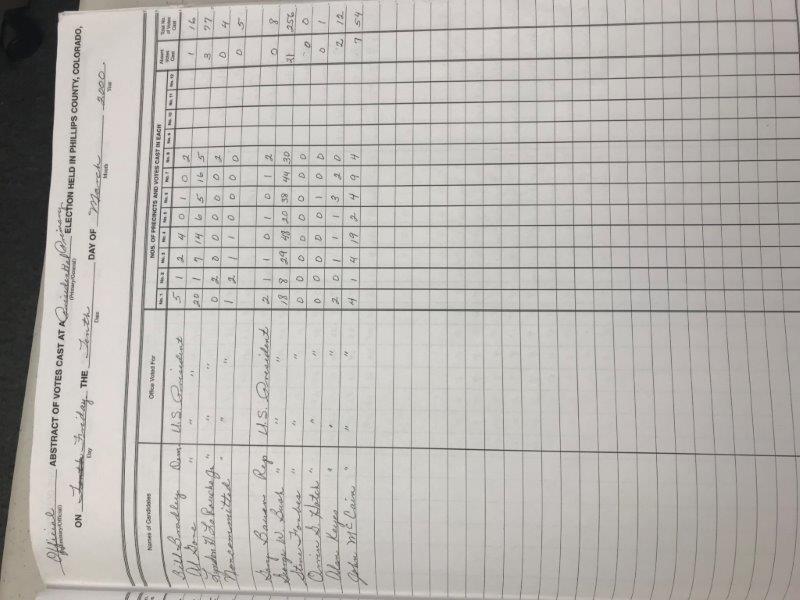 Official ABSTRACT OF VOTES CAST AT A Presidential Primary ELECTION HELD IN PHILLIPS COUNTY, COLORADO,
(Primary/General)
ON Friday THE Tenth DAY OF March 2000
Day Date Month Year
Names of Candidates Office Voted For NOS. OF PRECINCTS AND VOTES CAST IN EACH Absent Votes Cast Total No. of Votes Cast
No. 1 No. 2 No. 3 No. 4 No. 5 No. 6 No. 7 No. 8 No. 9 No. 10 No. 11 No. 12
Bill Bradley Dem U.S. President 5 1 2 4 0 1 0 2 1 16
Al Gore " " " 20 1 7 14 6 5 16 5 3 77
Lyndon H. LaRouche Jr " " " 0 2 0 0 0 0 0 2 0 4
Noncommitted " " " 1 2 1 1 0 0 0 0 0 5
Gary Bauer Rep U.S. President 2 1 1 0 1 0 1 2 0 8
George W. Bush " " 18 8 29 48 20 38 44 30 21 256
Steve Forbes " " 0 0 0 0 0 0 0 0 0 0
Orrin G. Hatch " " " 0 0 0 0 0 1 0 0 0 1
Alan Keyes " " " 2 0 1 1 1 3 2 0 2 12
John McCain " " " 4 1 4 19 2 4 9 4 7 54